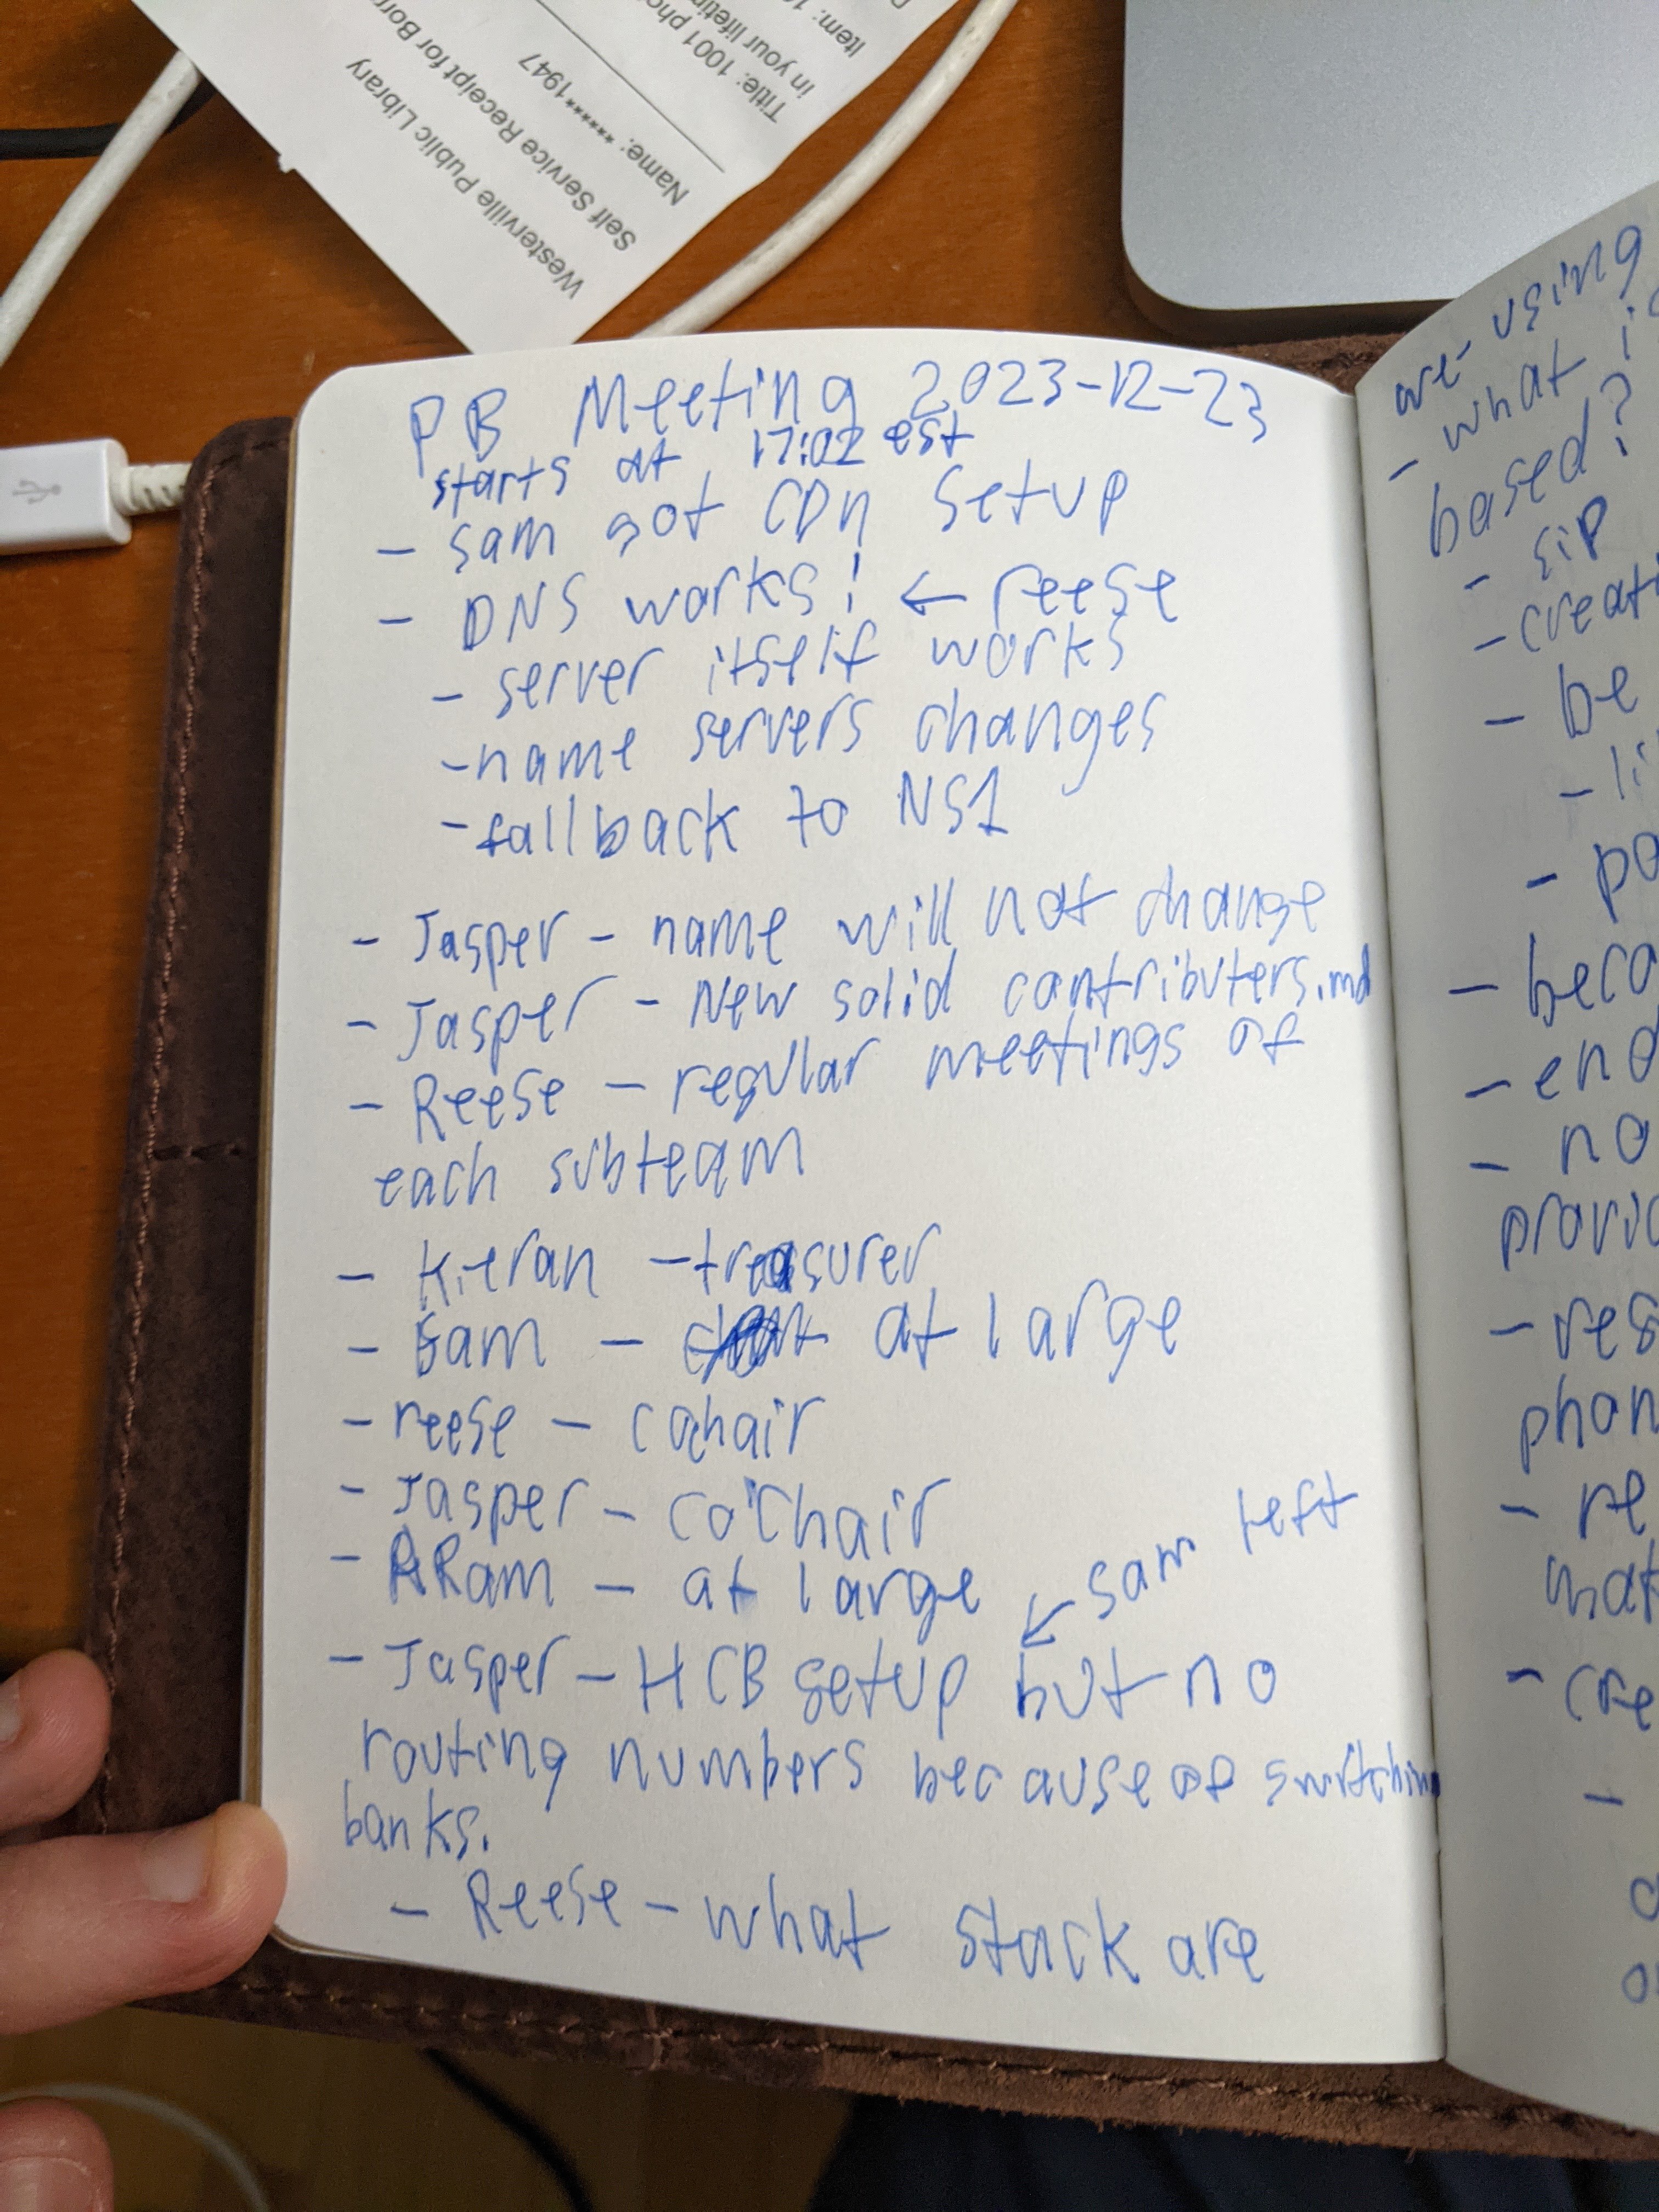 Westerville Public Library
Self Service Receipt for
Name: ******1947
Title: 1001
in your
Item:
PB Meeting 2023-12-23
starts at 17:02 est
- sam got CDN setup
- DNS works! ← reese
- server itself works
- name servers changes
- fallback to NS1
- Jasper - name will not change
- Jasper - New solid contributers.md
- Reese - regular meetings of
each subteam
- Kieran - treasurer
- Sam - at large
- reese - cochair
- Jasper - cochair
- ARam - at large
↙ sam left
- Jasper - HCB setup but no
routing numbers because of switching
banks.
- Reese - what stack are
we using
- what
based?
- sip
- be